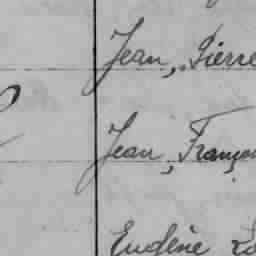 Jean, Pierre
Jean, Franço
Eugène